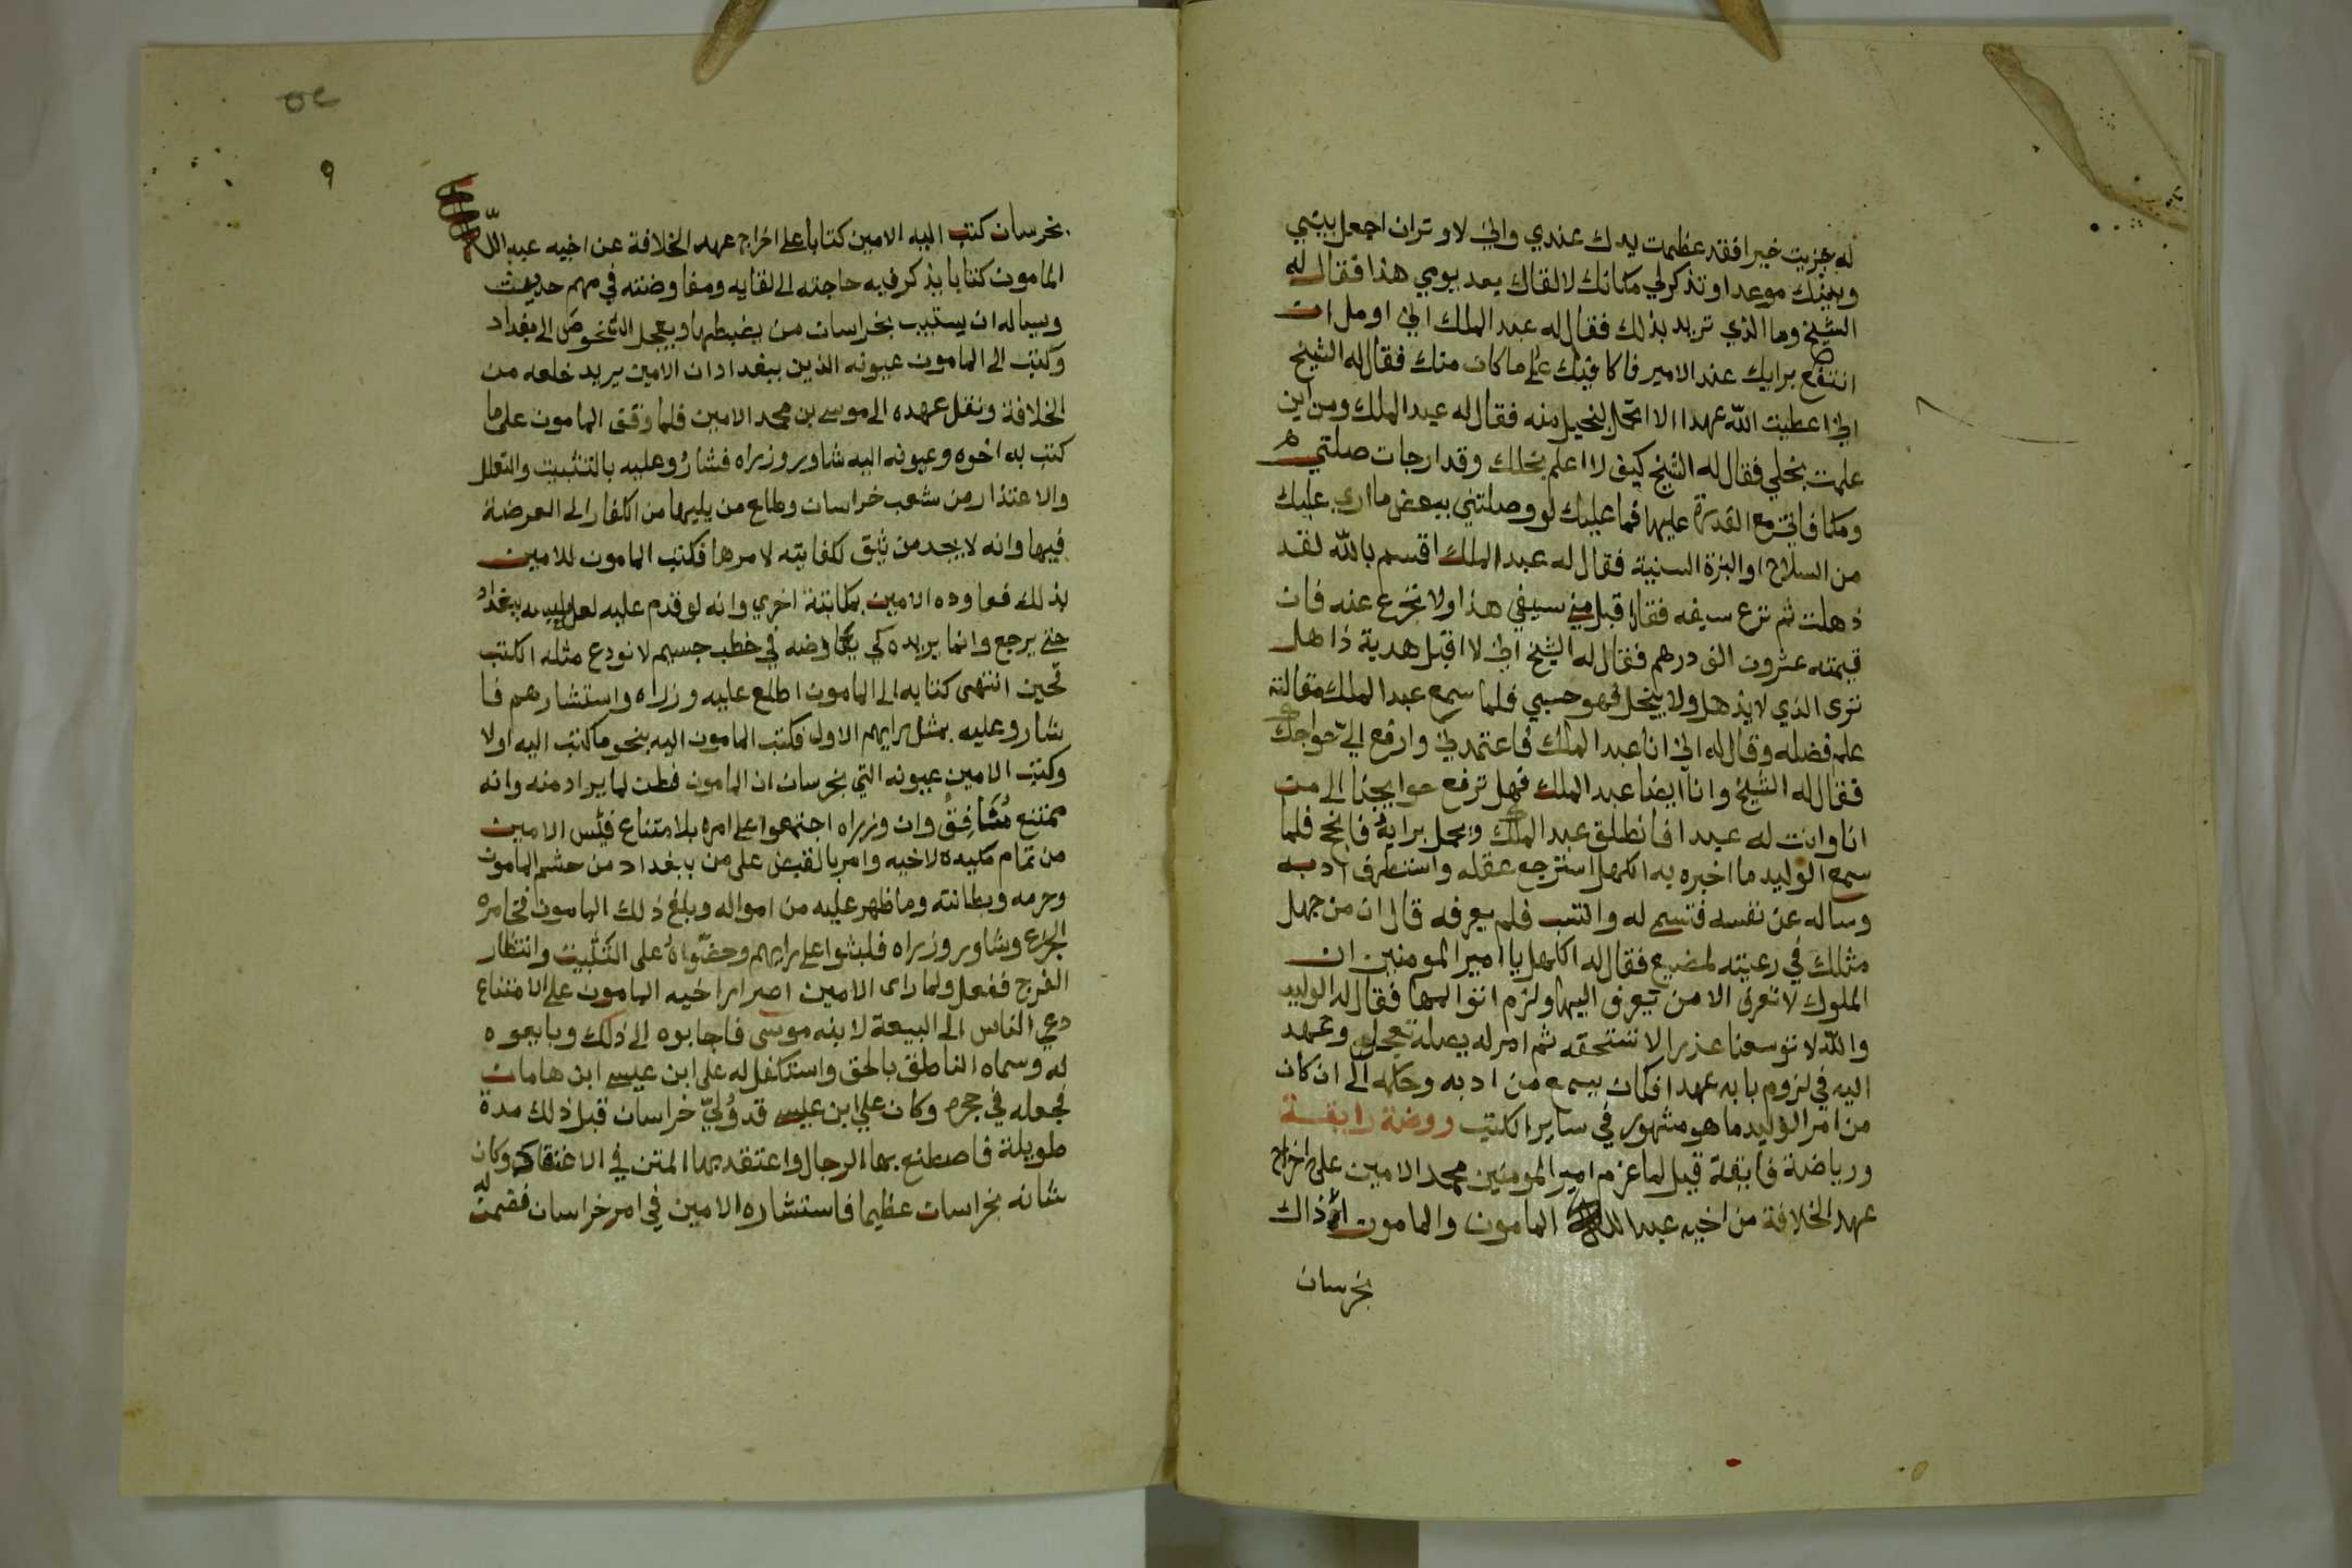 له جزيت خيرا فقد عظمت يدك عندي واني لاوثران اجعل بيني
وبينك موعدا وتذكر لي مكانك لالقاك بعد يومي هذا فقال له
الشيخ وما الذي تريد بذلك فقال له عبد الملك اني اومل ان
انتفع برايك عند الامير فاكافيك على ما كان منك فقال له الشيخ
اني اعطيت الله عهدا الا اتحمل لبخيل منه فقال له عبد الملك ومن اين
علمت بخلي فقال له الشيخ كيف لا اعلم بخلك وقد ارجات صلتي
ومكافاتي مع القدرة عليها فما عليك لو وصلتني ببعض ما اري عليك
من السلاح او البزة السنية فقال له عبد الملك اقسم بالله لقد
ذهلت ثم نزع سيفه فقال اقبل مني سيفي هذا ولا تخدع عنه فان
قيمته عشرون الف درهم فقال له الشيخ اني لا اقبل هدية ذاهل
نري الذي لا يذهل ولا يبخل فهو حسبي فلما سمع عبد الملك مقالته
علم فضله وقال له اني انا عبد الملك فاعتمدني وارفع الي حوايجك
فقال له الشيخ وانا ايضا عبد الملك فهل نرفع حوايجنا الى من
انا وانت له عبيدا فانطلق عبد الملك وعمل برايه فانجح فلما
سمع الوليد ما اخبره به الكهل استرجع عقله واستظرف ادبه
وساله عن نفسه فتسمى له وانتسب فلم يعرفه قال ان من جهل
مثلك في رعيته لمضيع فقال له الكهل يا امير المومنين ان
الملوك لا تعرف الا من تعرف اليها ولزم ابوابها فقال له الوليد
والله لا توسعنا عذرا لا نستحقه ثم امر له بصلة تعجل وعهد
اليه في لزوم بابه عهدا فكان يسمع من ادبه وحكمه الى ان كان
من امر الوليد ما هو مشهور في ساير الكتب روضة رايقة
ورياضة فايقة قيل لما عزم امير المومنين محمد الامين على اخراج
عهد الخلافة من اخيه عبد الله المامون والمامون اذ ذاك
بخرسان
٥٢
٩
بخرسان كتب اليه الامين كتابا على اخراج عهد الخلافة عن اخيه عبد الله
المامون كتابا يذكر فيه حاجته الى لقايه ومفاوضته في مهم حديث
ويساله ان يستنيب بخراسان من يضبطها ويعجل الشخوص الى بغداد
وكتب الى المامون عيونه الذين ببغداد ان الامين يريد خلعه من
الخلافة ونقل عهده الى موسى بن محمد الامين فلما وقف المامون على ما
كتب به اخوه وعيونه اليه شاور وزراه فشاروعليه بالتثبت والتعلل
والاعتذار من شعب خراسان وطامع من يليها من الكفار الى الفرصة
فيها وانه لا يجد من يثق لكفايته لامرها فكتب المامون للامين
بذلك فعاوده الامين بمكاتبة اخري وانه لو قدم عليه لعل لبسه ببغداد
حتى يرجع وانما يريده كي يفاوضه في خطب جسيم لا نودع مثله الكتب
فحين انتهى كتابه الى المامون اطلع عليه وزراه واستشارهم فا
شارو عليه بمثل رايهم الاول فكتب المامون اليه بنحو ما كتب اليه اولا
وكتب الامين عيونه التي بخرسان ان المامون فطن لما يراد منه وانه
ممتنع مشافق وان وزراه اجتمعوا على امره بلا متناع فيئس الامين
من تمام مكيده لاخيه وامر بالقبض على من ببغداد من حشم المامون
وحرمه وبطانته وما ظهر عليه من امواله وبلغ ذلك المامون فخامره
الجزع وشاور وزراه فلبثوا على رايهم وحضوه على التثبيت وانتظار
الفرج ففعل ولما راى الامين اصرار اخيه المامون على الامتناع
دعي الناس الى البيعة لابنه موسى فاجابوه الى ذلك وبايعوه
له وسماه الناطق بالحق واستكفل له على ابن عيسى ابن هامان
فجعله في حجره وكان علي ابن عيسى قد ولي خراسان قبل ذلك مدة
طويلة فاصطنع بها الرجال واعتقد بها المنن في الاعناق وكان
شانه بخراسان عظيما فاستشاره الامين في امر خراسان فقمت له